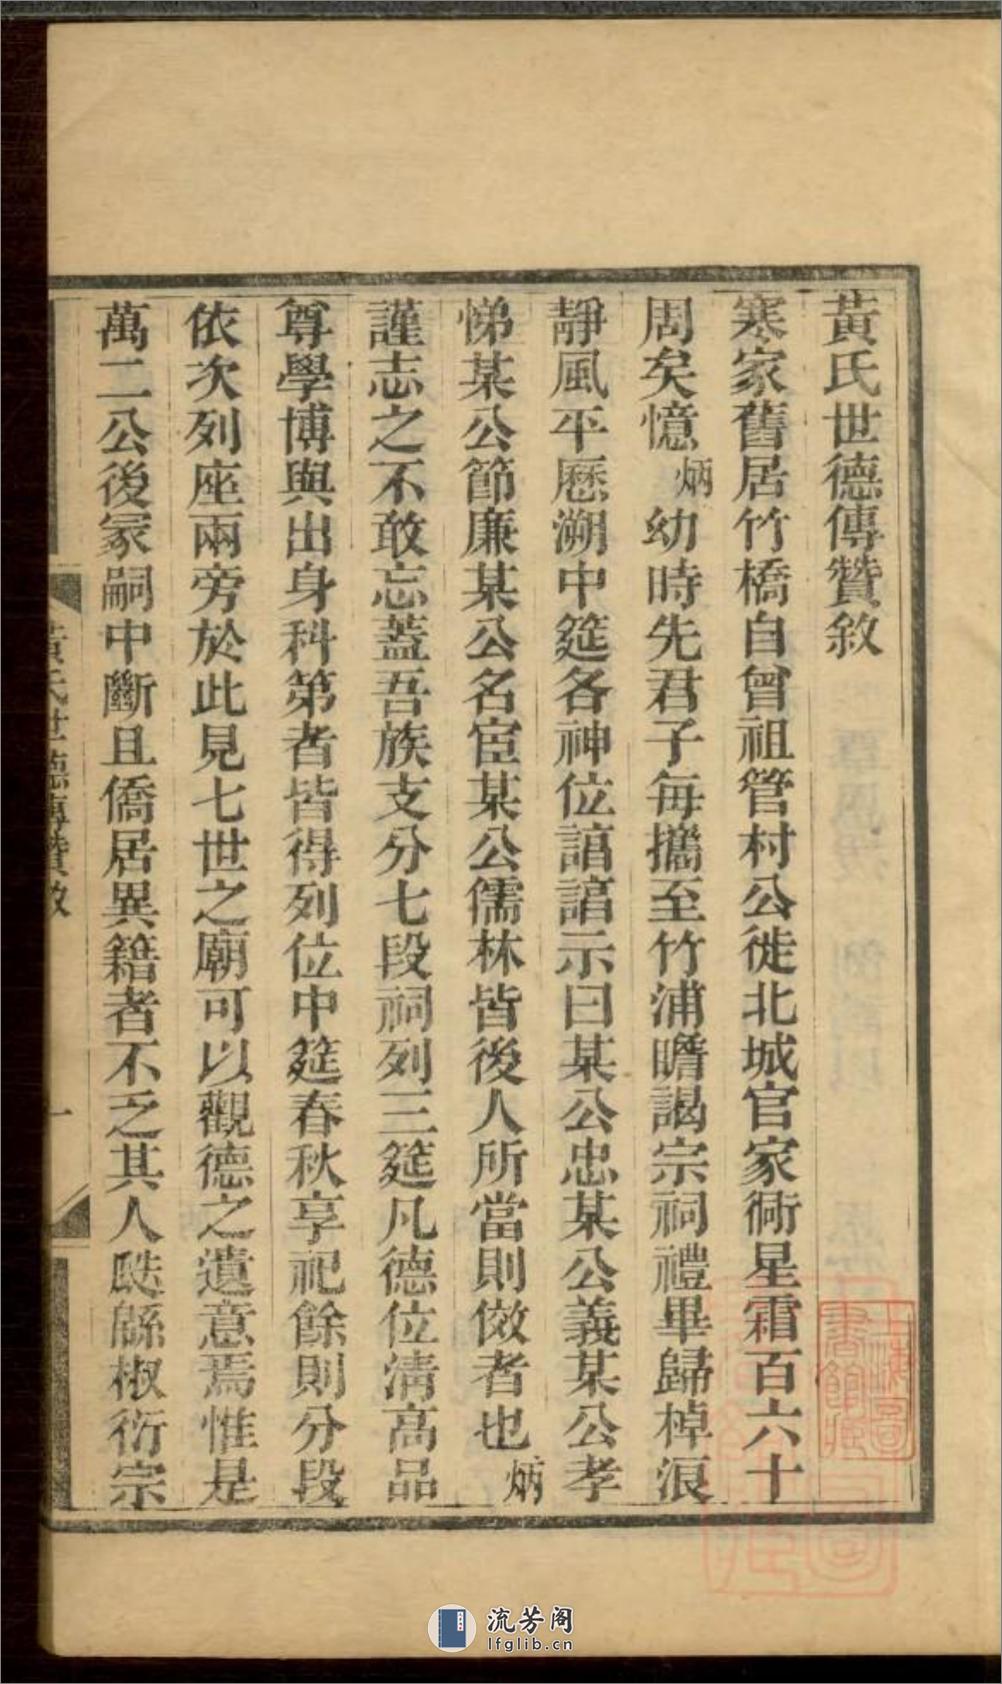 黃氏世德傳贊敘
寒家舊居竹橋自曾祖管村公徙北城官家衕星霜百六十
周矣憶炳幼時先君子每攜至竹浦瞻謁宗祠禮畢歸棹浪
靜風平歷溯中筵各神位諳諳示曰某公忠某公義某公孝
悌某公節廉某公名宦某公儒林皆後人所當則傚者也炳
謹志之不敢忘蓋吾族支分七段祠列三筵凡德位淸高品
尊學博與出身科第者皆得列位中筵春秋享祀餘則分段
依次列座兩旁於此見七世之廟可以觀德之遺意焉惟是
萬二公後冢嗣中斷且僑居異籍者不乏其人瓞緜椒衍宗
黃氏世德傳贊敘
一
上海圖書館藏
流芳阁
lfglib.cn